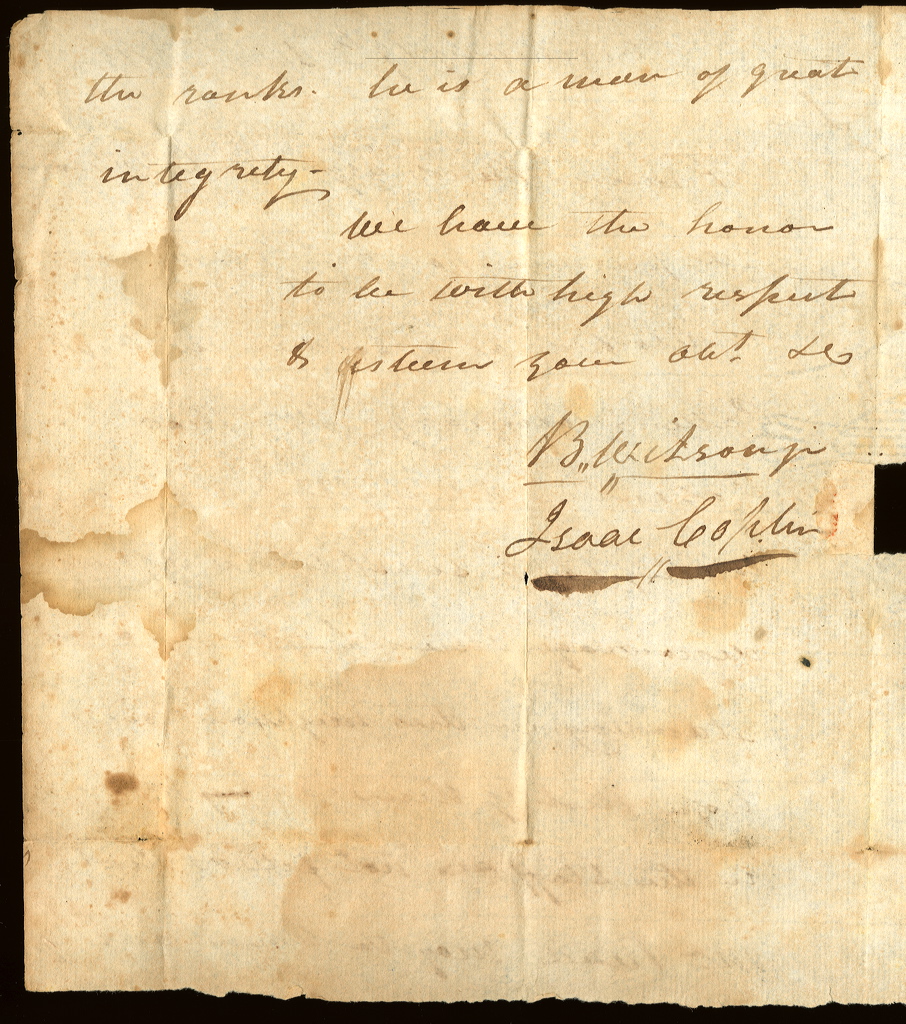 the ranks. he is a man of great
integrety-
We have the honor
to be with high respect
& esteem your obt. &c
Isaac Coplin